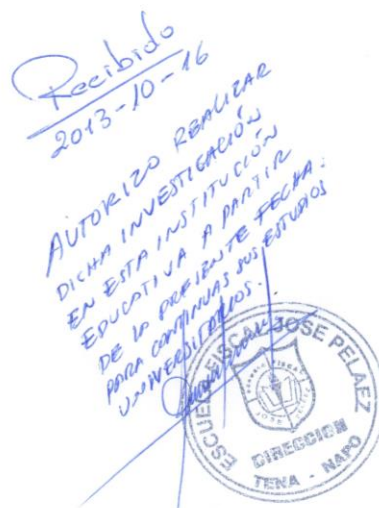 Recibido
2013-10-16
AUTORIZO REALIZAR
DICHA INVESTIGACIÓN
EN ESTA INSTITUCIÓN
EDUCATIVA A PARTIR
DE LA PRESENTE FECHA.
PARA CONTINUAR SUS ESTUDIOS
UNIVERSITARIOS.
ESCUELA FISCAL JOSE PELAEZ
DIRECCION
TENA - NAPO